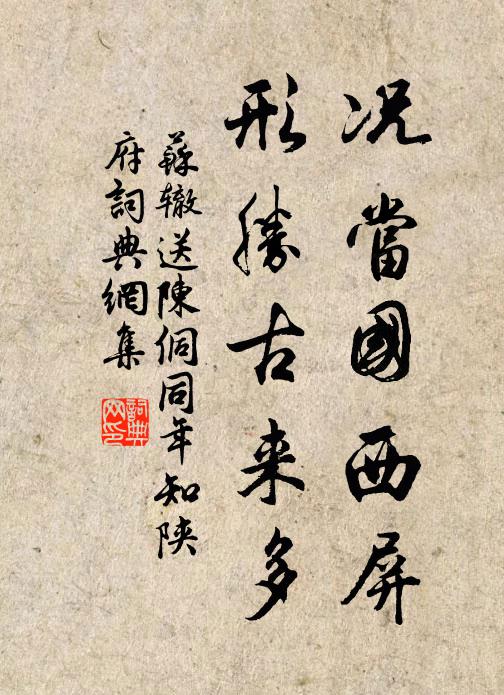 况當國西屏
形勝古来多
蘇辙送陳侗同年知陝
府詞典網集
詞典
网印